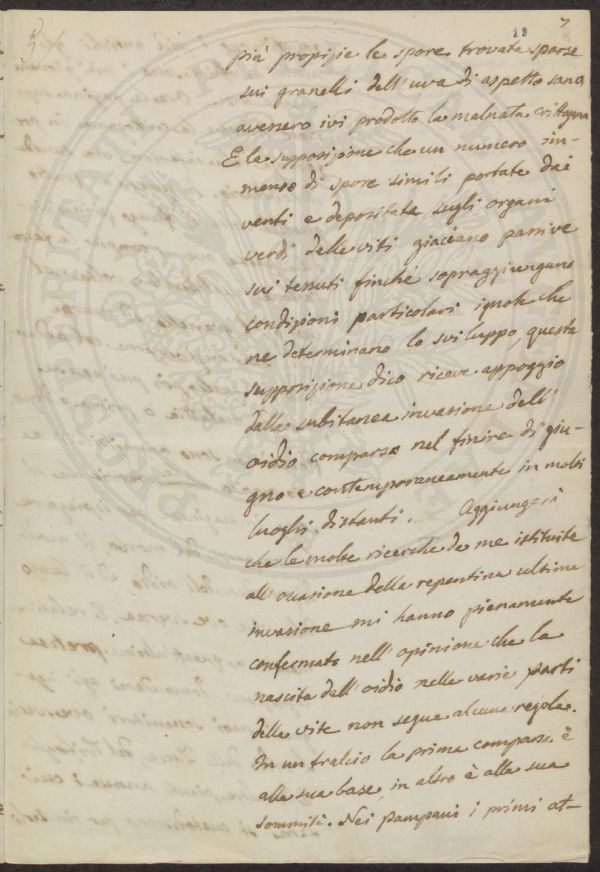 13
7
5
più propizie le spore trovate sparse
sui granelli dell'uva di aspetto sano
avessero ivi prodotto la malnata crittogama
E la supposizione che un numero im-
menso di spore simili portate dai
venti e depositate sugli organi
verdi delle viti giaciano passive
sui tessuti finché sopraggiungano
condizioni particolari ignote che
ne determinano lo sviluppo, questa
supposizione dico riceve appoggio
dalla subitanea invasione dell'
oidio comparso nel finire di giu-
gno e contemporaneamente in molti
luoghi distanti. Aggiungerò
che le molte ricerche da me istituite
all'occasione della repentina ultima
invasione mi hanno pienamente
confermato nell'opinione che la
nascita dell'oidio nelle varie parti
della vite non segua alcuna regola.
In un tralcio la prima comparsa è
alla sua base, in altro è alla sua
sommità. Nei pampani i primi at-